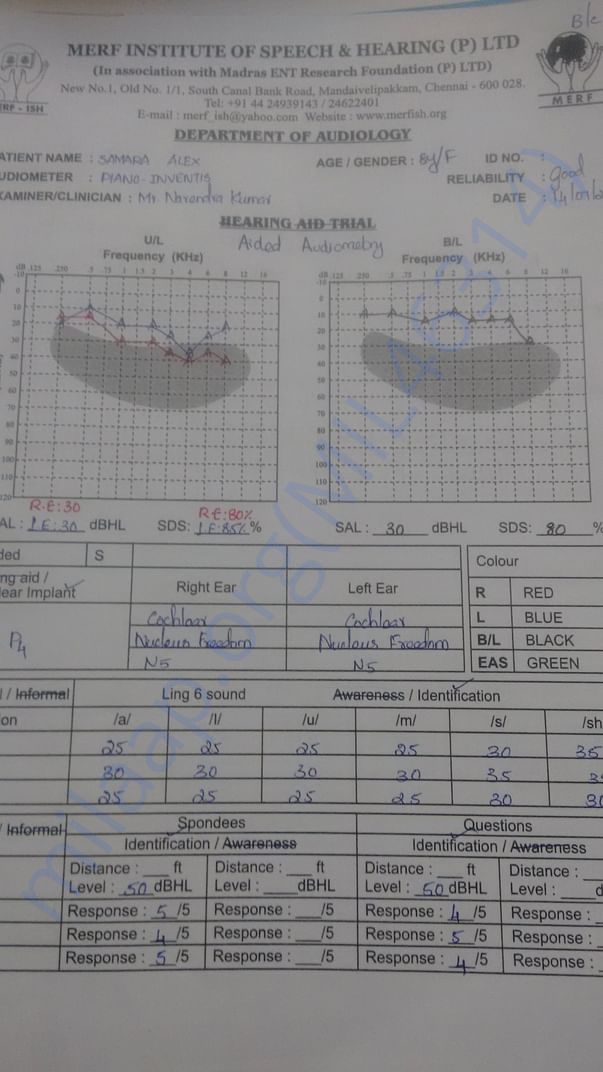 B/c
MERF INSTITUTE OF SPEECH & HEARING (P) LTD
(In association with Madras ENT Research Foundation (P) LTD)
New No.1, Old No. 1/1, South Canal Bank Road, Mandaivelipakkam, Chennai - 600 028.
Tel: +91 44 24939143 / 24622401
E-mail : merf_ish@yahoo.com Website : www.merfish.org
ERF - ISH
MERF
DEPARTMENT OF AUDIOLOGY
ATIENT NAME : SAMARA ALEX AGE / GENDER : 8y/F ID NO. :
UDIOMETER : PIANO-INVENTIS RELIABILITY : Good
XAMINER/CLINICIAN : Mr. Narendra Kumar DATE : 14/07/2
HEARING AID TRIAL
Aided Audiometry
U/L B/L
Frequency (KHz) Frequency (KHz)
dB .125 .250 .5 .75 1 1.5 2 3 4 6 8 12 16
dB .125 .250 .5 .75 1 1.5 2 3 4 6 8 12 16
-10 -10
0 0
10 10
20 20
30 30
40 40
50 50
60 60
70 70
80 80
90 90
100 100
110 110
120 120
R.E:30 R.E:80%
AL : L.E:30 dBHL SDS: L.E:85% % SAL : 30 dBHL SDS: 80 %
ded S
Colour
ng aid / lear Implant Right Ear Left Ear
R RED
L BLUE
B/L BLACK
EAS GREEN
P4
Cochlear Cochlear
Nucleus Freedom Nucleus Freedom
N5 N5
l / Informal Ling 6 sound Awareness / Identification
on /a/ /I/ /u/ /m/ /s/ /sh
25 25 25 25 30 35
30 30 30 30 35
25 25 25 25 30 30
/ Informal Spondees Questions
Identification / Awareness Identification / Awareness
Distance : ___ ft Distance : ___ ft Distance : ___ ft Distance :
Level : 50 dBHL Level : ____dBHL Level : 50 dBHL Level : ____d
Response : 5 /5 Response : ___/5 Response : 4 /5 Response :
Response : 4 /5 Response : ___/5 Response : 5 /5 Response :
Response : 5 /5 Response : ___/5 Response : 4 /5 Response :
milaap.org(MIL46314)